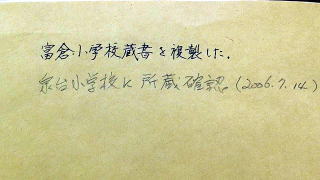 富倉小学校蔵書を複製した.
泉台小学校に所蔵確認 (2006.7.14)